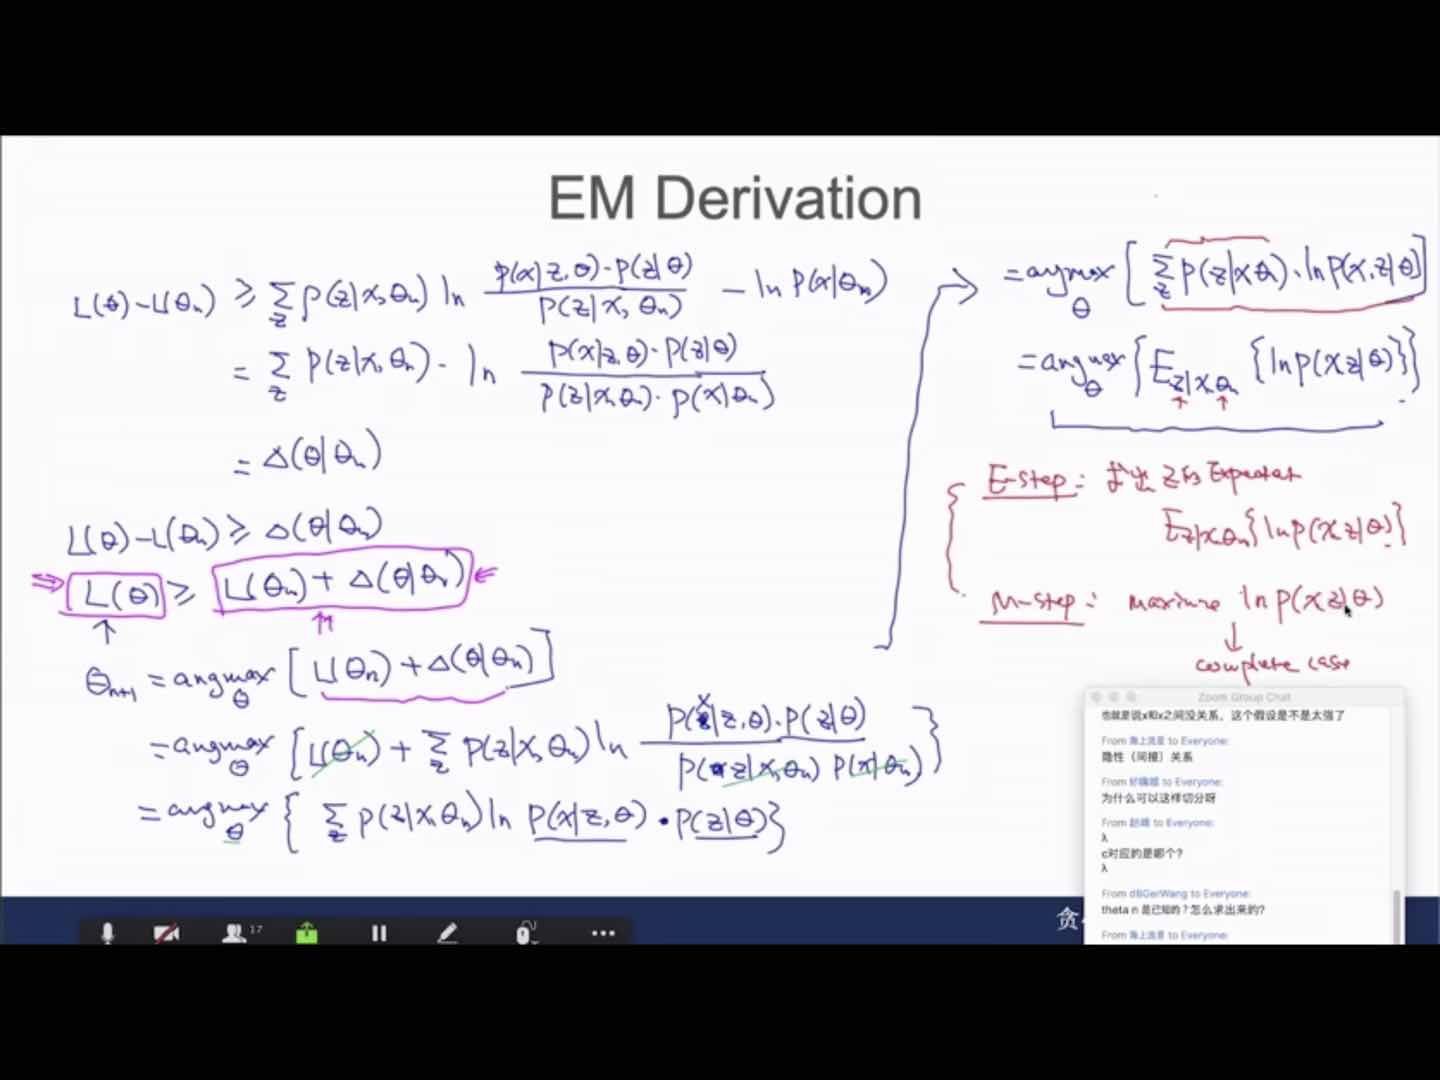 EM Derivation
L(θ)-L(θₙ) ≥ Σ_z P(z|x,θₙ) ln P(x|z,θ)·P(z|θ) / P(z|x,θₙ) - ln P(x|θₙ)
= Σ_z P(z|x,θₙ) · ln P(x|z,θ)·P(z|θ) / P(z|x,θₙ)·P(x|θₙ)
= Δ(θ|θₙ)
L(θ)-L(θₙ) ≥ Δ(θ|θₙ)
L(θ) ≥ L(θₙ) + Δ(θ|θₙ)
θₙ₊₁ = argmax_θ [L(θₙ) + Δ(θ|θₙ)]
= argmax_θ [L(θₙ) + Σ_z P(z|x,θₙ) ln P(x|z,θ)·P(z|θ) / P(z|x,θₙ) P(x|θₙ)}
= argmax_θ { Σ_z P(z|x,θₙ) ln P(x|z,θ) · P(z|θ)}
= argmax_θ [Σ_z P(z|xθₙ)·ln P(x,z|θ)]
= argmax_θ {E_z|x,θₙ {ln P(xz|θ)}}
E-step: 求出 z的 Expectat
E_z|xθₙ {ln P(xz|θ)}
M-step: maximize ln P(xz|θ)
complete case
Zoom Group Chat
也就是说x和x之间没关系，这个假设是不是太强了
From 海上流星 to Everyone:
隐性（间接）关系
From to Everyone:
为什么可以这样切分呀
From 赵峰 to Everyone:
λ
c对应的是哪个?
λ
From dBGerWang to Everyone:
theta n 是已知的？怎么求出来的?
From 海上流星 to Everyone:
17
贪